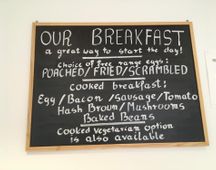 OUR BREAKFAST
a great way to start the day!
choice of free range eggs:
POACHED/FRIED/SCRAMBLED
cooked breakfast:
Egg/Bacon/Sausage/Tomato
Hash Brown/Mushrooms
Baked Beans
Cooked vegetarian option
is also available